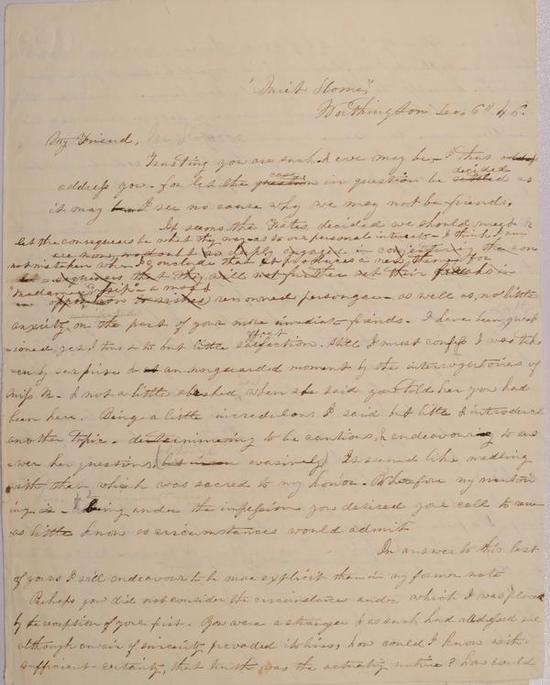 "Quiet Home"
Worthington Dec. 6th 46.
My Friend,
Trusting you are such & ever may be I thus
address you - for let the question case in question be settled decided as
it may I see no cause why we may not be friends.
It seems the Fates decided we should meet &
let the consequences be what they may as to our personal interests I think I am
not mistaken when I conclude that it produces a new theme for
Madam Gossip & most
renowned personages as well as, no little
anxiety on the part of your more imediate friends. I have been quest
ioned, yes I two & to but little satisfection. Still I must confess I was tak
en by surprise & at an unguarded moment by the interrogatories of
Miss M. & not a little abashed, when she said you told her you had
been here. Being a little incredulous I said but little & introduced
another topic - determineing to be cautious, & endeavouring to ans
wer her questions, evasively) It seemed like medling
with that, which was sacred to my honor.
being under the impression you desired your call to
as little know as circumstances would admit
In answer to this last
of yours I will endeavour to be more explicit than in my former note
Perhaps you did not consider the circumstances under which I was placed
by the reception of your first. You were a stranger & as such had addressed me
although an air of sincerity prevaded its lines, how could I know with
sufficient certainty, that truth was the actuating motive? how could